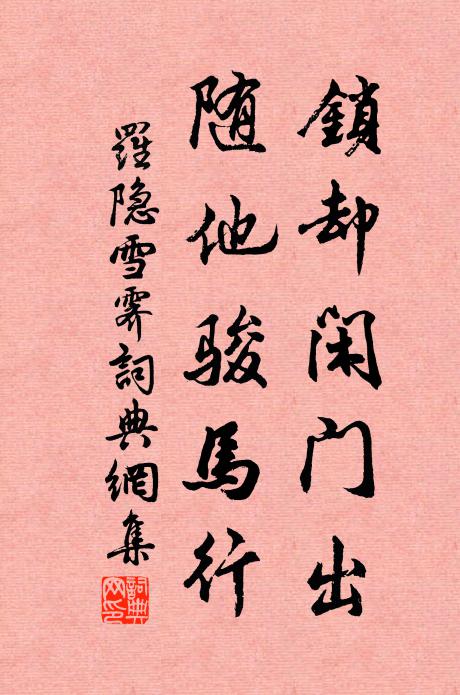 鎖却閑门出
随他骏馬行
羅隐雪霁詞典網集
詞典网印